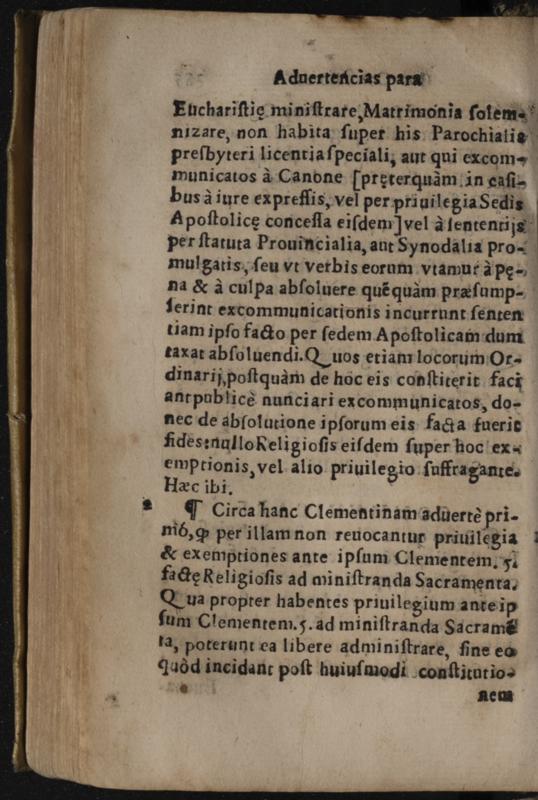 Aduertencias para
Euchariſtię miniſtrare, Matrimonia ſolem-
nizare, non habita ſuper his Parochialis
presbyteri licentia ſpeciali, aut qui excom-
municatos à Canone [pręterquàm in caſi-
bus à iure expreſſis, vel per priuilegia Sedis
Apoſtolicę conceſſa eiſdem] vel à ſententijs
per ſtatuta Prouincialia, aut Synodalia pro-
mulgatis, ſeu vt verbis eorum vtamur à pę-
na & à culpa abſoluere quẽquàm præſump-
ſerint excommunicationis incurrunt ſenten
tiam ipſo facto per ſedem Apoſtolicam dum
taxat abſoluendi. Quos etiam locorum Or-
dinarij, poſtquàm de hoc eis conſtiterit faci
ant publicè nunciari excommunicatos, do-
nec de abſolutione ipſorum eis facta fuerit
fides: nullo Religioſis eiſdem ſuper hoc ex-
emptionis, vel alio priuilegio ſuffragante.
Hæc ibi.
2 ¶ Circa hanc Clementinam aduertè pri-
mò, ꝙ per illam non reuocantur priuilegia
& exemptiones ante ipſum Clementem. 5.
factę Religioſis ad miniſtranda Sacramenta.
Qua propter habentes priuilegium ante ip
ſum Clementem. 5. ad miniſtranda Sacramẽ
ta, poterunt ea libere adminiſtrare, ſine eo
quòd incidant poſt huiuſmodi conſtitutio-
nem